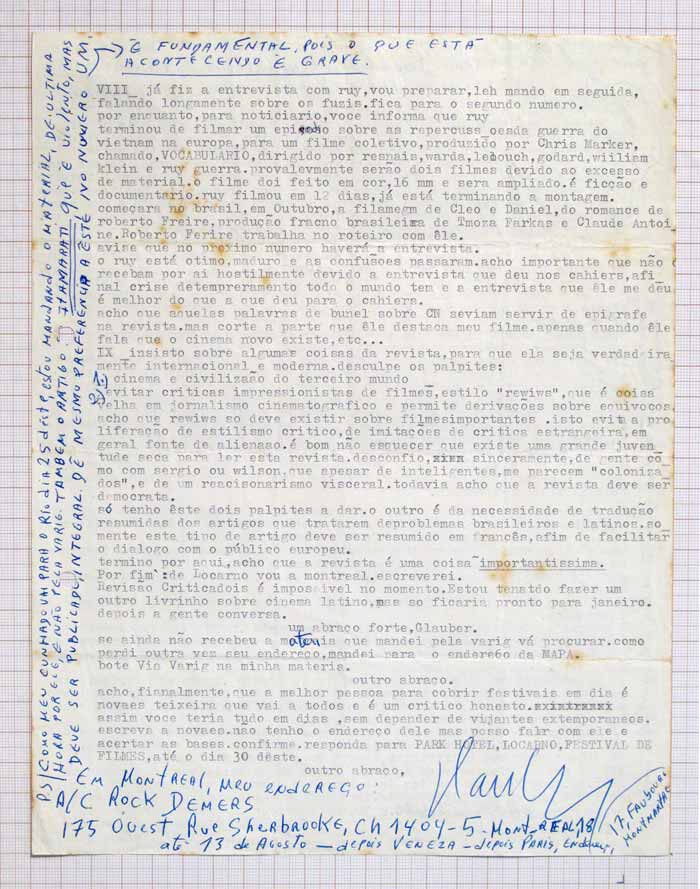 É FUNDAMENTAL, POIS O QUE ESTÁ
ACONTECENDO É GRAVE.
VIII já fiz a entrevista com ruy,vou preparar,leh mando em seguida,
falando longamente sobre os fuzis.fica para o segundo numero.
por enquanto,para noticiario,voce informa que ruy
terminou de filmar um episodo sobre as repercuss oesda guerra do
vietnam na europa,para um filme coletivo,produzião por Chris Marker,
chamado,VOCABULARIO,dirigido por resnais,warda,lelouch,godard,wiiliam
klein e ruy guerra.provalevmente serão dois filmes devido ao excesso
de material.o filme doi feito em cor,16 mm e sera ampliado.é ficção e
documentario.ruy filmou em 12 dias,já está terminando a montagem.
começara no brasil,em Outubro,a filamegm de Cleo e Daniel,do romance de
roberto Freire,produção fracno brasileira de Tmoza Farkas e Claude Antoi
ne.Roberto Ferire trabalha no roteiro com êle.
avise que no proximo numero haverá a entrevista.
o ruy está otimo,maduro,e as confusoes passaram.acho importante que não o
recebam por ai hostilmente devido a entrevista que deu nos cahiers,afi
nal crise detempreramento todo o mundo tem e a entrevista que êle me deu
é melhor do que a que deu para o cahiers.
acho que aquelas palavras de bunel sobre CN seviam servir de epigrafe
na revista.mas corte a parte que êle destaca meu filme.apenas quando êle
fala que o cinema novo existe,etc...
IX insisto sobre algumas coisas da revista,para que ela seja verdadeira
mente internacional e moderna.desculpe os palpites:
cinema e civilizaão do terceiro mundo
evitar criticas impressionistas de filmes,estilo "rewiws",que é coisa
velha em jornalismo cinematografico e permite derivações sobre equivocos
acho que rewiws so deve existir sobre filmesimportantes .isto evita pro
liferação de estilismo critico,de imitações de critica estrangeira,em
geral fonte de alienaao.é bom não esquecer que existe uma grande juven
tude seca para ler esta revista.desconfio, sinceramente,de gente co
mo com sergio ou wilson,que apesar de inteligentes,me parecem "coloniza
dos",e de um reacisonarismo visceral.todavia acho que a revista deve ser
democrata.
só tenho êste dois palpites a dar.o outro é da necessidade de tradução
resumidas dos artigos que tratarem deproblemas brasileiros e latinos.so
mente este tipo de artigo deve ser resumido em francês,afim de facilitar
o dialogo com o público europeu.
termino por aqui,acho que a revista é uma coisa importantissima.
Por fim :de Locarno vou a montreal.escreverei.
Revisão Criticadois é impossivel no momento.Estou tenstdo fazer um
outro livrinho sobre cinema latino,mas so ficaria pronto para janeiro.
depois a gente conversa.
um abraço forte,Glauber.
se ainda não recebeu a materia que mandei pela varig vá procurar.como
perdi outra vez seu endereço,mandei para o endereßo da MAPA.
bote Via Varig na minha materia.
outro abraço.
acho,fianalmente,que a melhor pessoa para cobrir festivais em dia é
novaes teixeira que vai a todos e é um critico honesto.
assim voce teria tudo em dias ,sem depender de viajantes extemporaneos.
escreva a novaes.nao tenho o endereço dele mas posso falr com ele e
acertar as bases.confirme.responda para PARK HOTEL,LOCARNO,FESTIVAL DE
FILMES,até o dia 30 dêste.
outro abraço,
EM MONTREAL, MEU ENDEREÇO:
A/C ROCK DEMERS
175 OUEST RUE SHERBROOKE, CH 1404-5-MONTREAL, 18
até 13 de AGOSTO — depois VENEZA — depois PARIS, Endereço,
17, FAUBOURG
MONTMARTRE
PS/ COMO MEU CUNHADO VAI PARA O RIO DIA 25 DESTE, ESTOU MANDANDO O MATERIAL, DE ULTIMA
HORA POR ELE, E NÃO PELA VARIG. TAMBEM O ARTIGO ITAMARATI QUE É VIOLENTO, MAS
DEVE SER PUBLICADO, INTEGRAL. DÊ MESMO PREFERENCIA A ESTE NO NUMERO UM